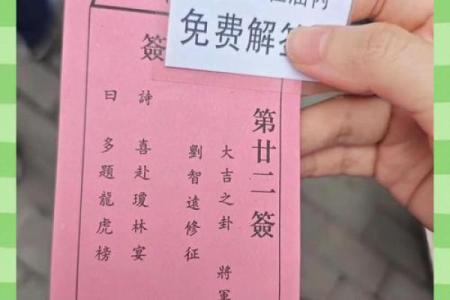 免费解签
簽
第廿二簽
大吉之卦 將軍
劉智遠修征
詩 喜赴瓊林宴
曰 多題龍虎榜